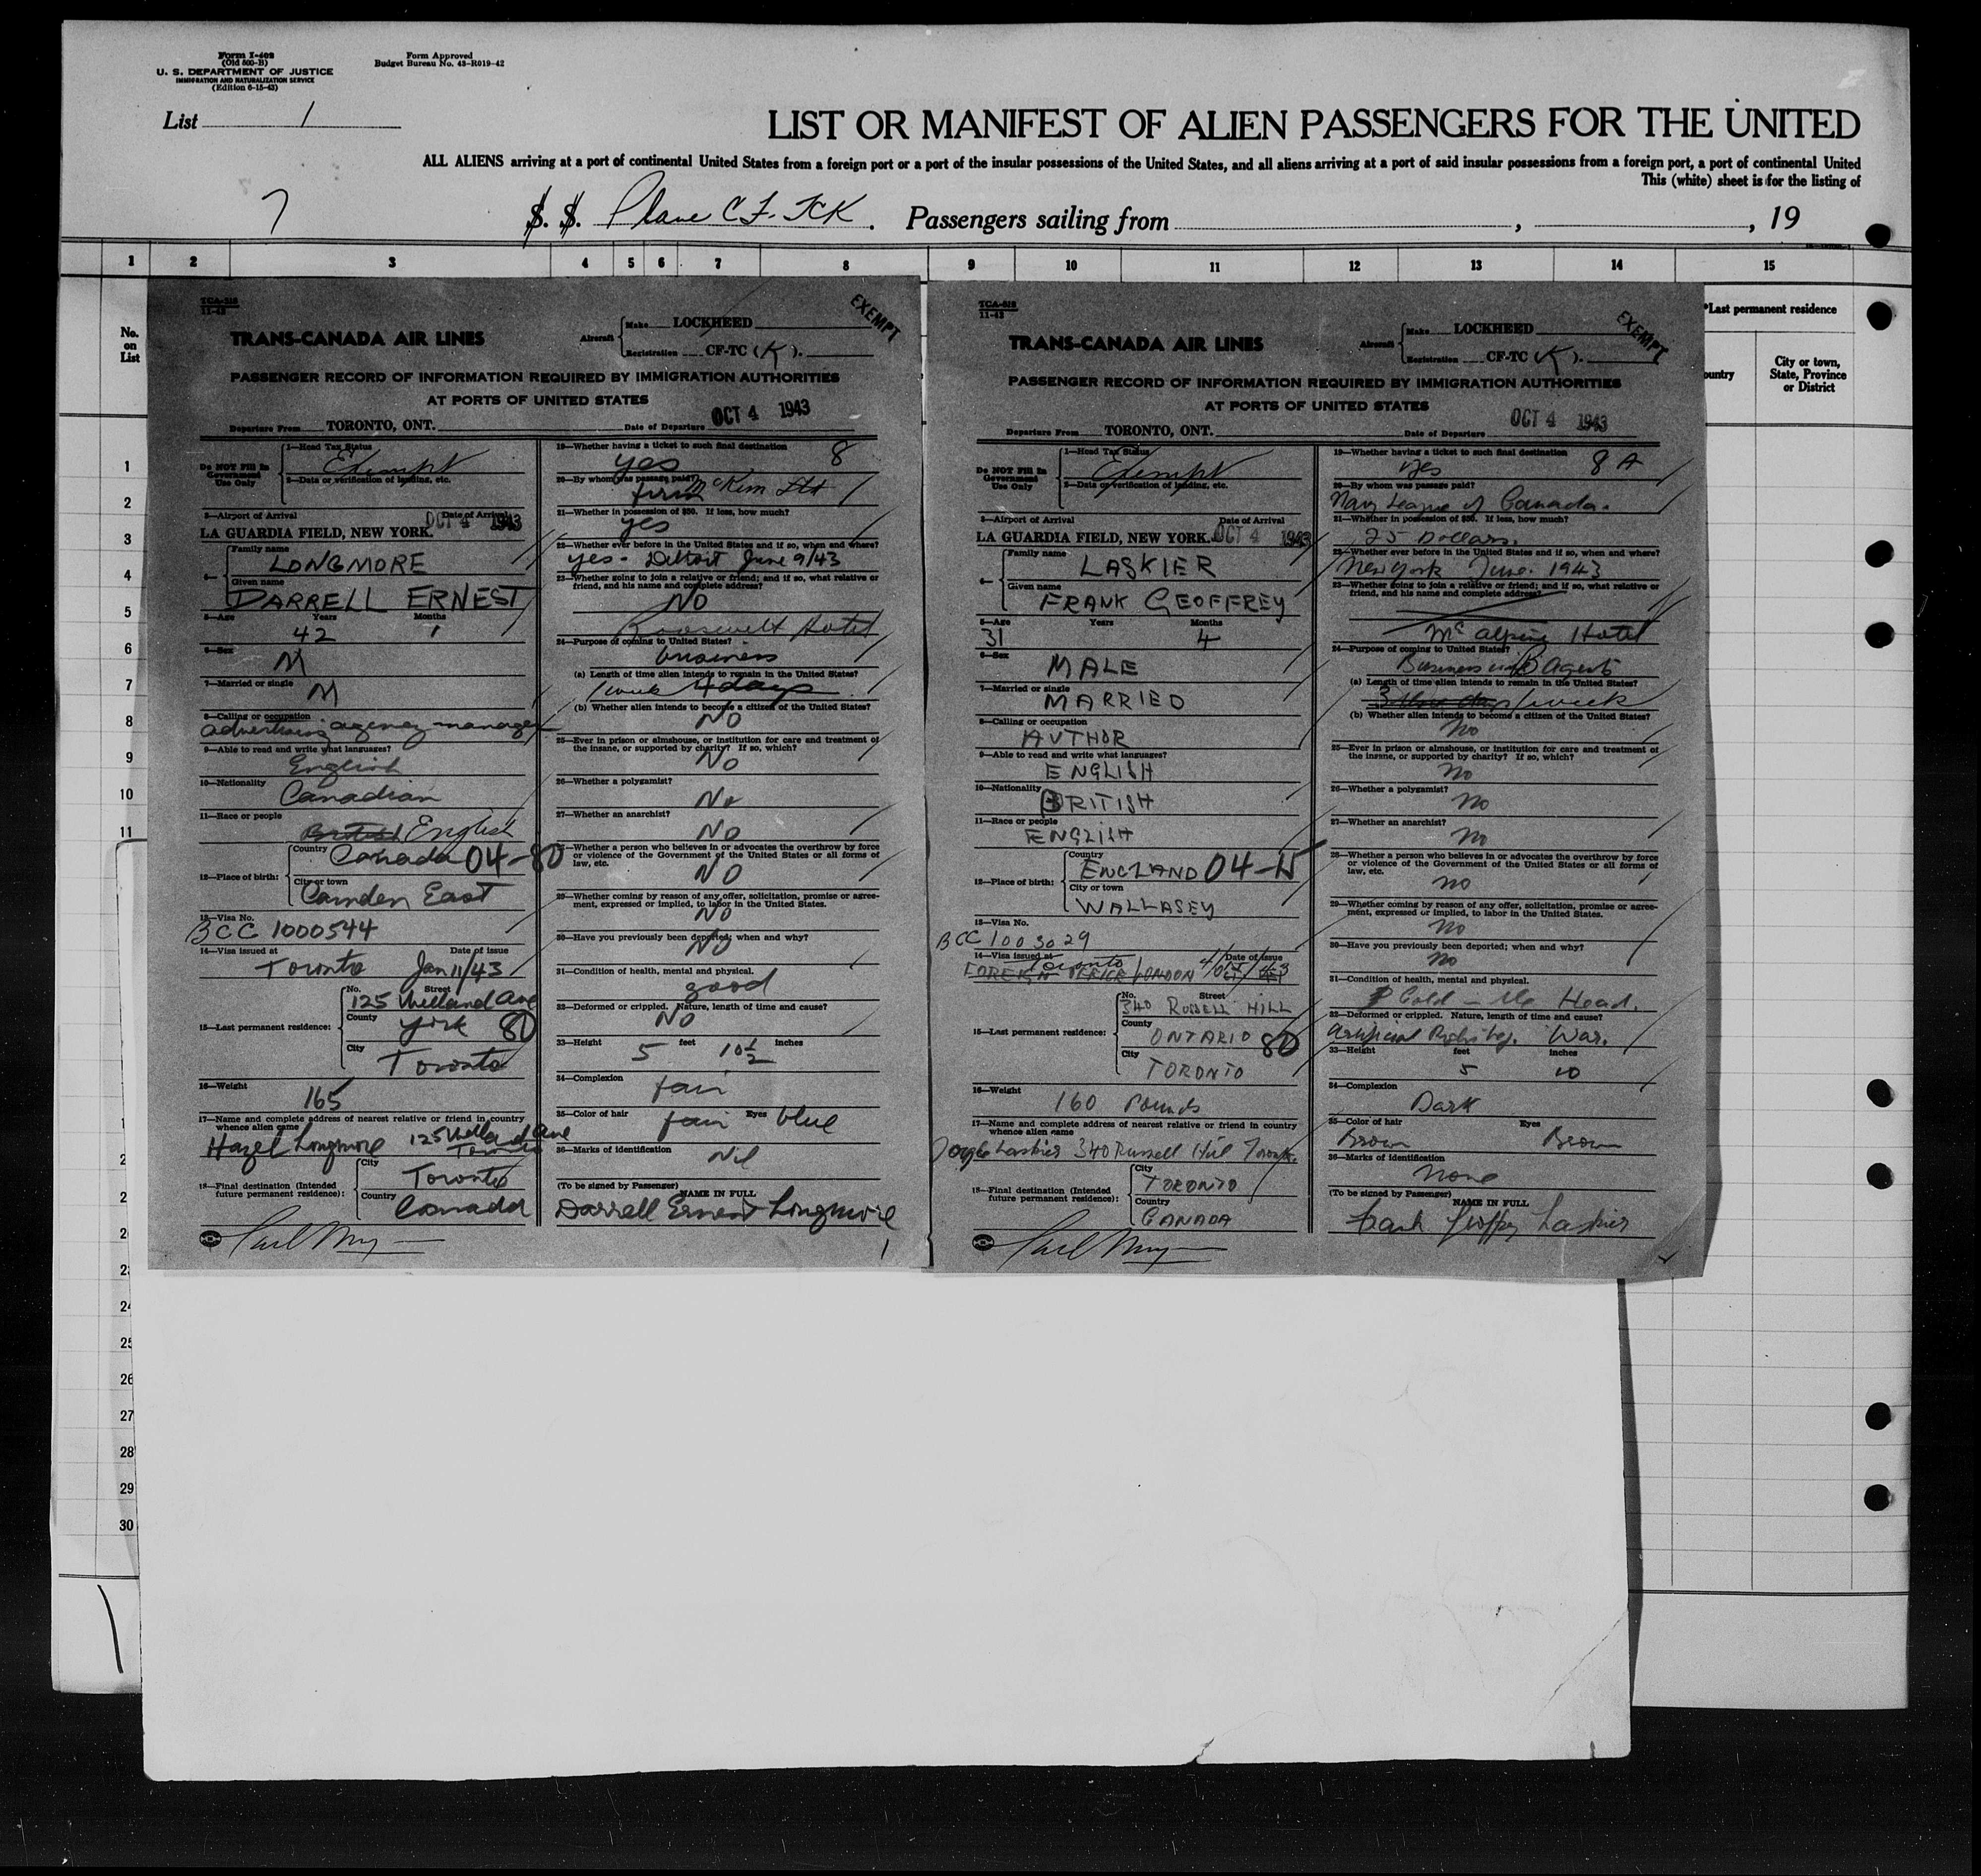 Form I-409
(Old 500-B)
U. S. DEPARTMENT OF JUSTICE
IMMIGRATION AND NATURALIZATION SERVICE
(Edition 6-15-43)
Form Approved
Budget Bureau No. 43-R019-42
List 1
LIST OR MANIFEST OF ALIEN PASSENGERS FOR THE UNITED
ALL ALIENS arriving at a port of continental United States from a foreign port or a port of the insular possessions of the United States, and all aliens arriving at a port of said insular possessions from a foreign port, a port of continental United
This (white) sheet is for the listing of
7 S. S. Plane CF-TCK. Passengers sailing from , , 19
1 2 3 4 5 6 7 8 9 10 11 12 13 14 15
No. on List
*Last permanent residence
ountry
City or town, State, Province or District
1
2
3
4
5
6
7
8
9
10
11
TRANS-CANADA AIR LINES
Aircraft Make LOCKHEED
Registration CF-TC (K).
EXEMPT
PASSENGER RECORD OF INFORMATION REQUIRED BY IMMIGRATION AUTHORITIES
AT PORTS OF UNITED STATES
Departure From TORONTO, ONT. Date of Departure OCT 4 1943
Do NOT Fill In Government Use Only
1—Head Tax Status
Exempt
2—Data or verification of landing, etc.
3—Airport of Arrival Date of Arrival
LA GUARDIA FIELD, NEW YORK. OCT 4 1943
4— Family name
LONGMORE
Given name
DARRELL ERNEST
5—Age Years Months
42 1
6—Sex
M
7—Married or single
M
8—Calling or occupation
advertising agency manager
9—Able to read and write what languages?
English
10—Nationality
Canadian
11—Race or people
British English
12—Place of birth: Country
Canada 04-80
City or town
Camden East
13—Visa No.
BCC 1000544
14—Visa issued at Date of issue
Toronto Jan 11/43
15—Last permanent residence: No. Street
125 Welland Ave
County
York 80
City
Toronto
16—Weight
165
17—Name and complete address of nearest relative or friend in country
whence alien came
Hazel Longmore 125 Welland Ave
Toronto
18—Final destination (Intended future permanent residence): City
Toronto
Country
Canada
19—Whether having a ticket to such final destination 8
yes
20—By whom was passage paid?
firm McKim Ltd
21—Whether in possession of $50. If less, how much?
yes
22—Whether ever before in the United States and if so, when and where?
yes - Detroit June 9/43
23—Whether going to join a relative or friend; and if so, what relative or
friend, and his name and complete address?
No
Roosevelt Hotel
24—Purpose of coming to United States?
business
(a) Length of time alien intends to remain in the United States?
1 week 4 days
(b) Whether alien intends to become a citizen of the United States?
No
25—Ever in prison or almshouse, or institution for care and treatment of
the insane, or supported by charity? If so, which?
No
26—Whether a polygamist?
No
27—Whether an anarchist?
No
28—Whether a person who believes in or advocates the overthrow by force
or violence of the Government of the United States or all forms of
law, etc.
NO
29—Whether coming by reason of any offer, solicitation, promise or agree-
ment, expressed or implied, to labor in the United States.
No
30—Have you previously been deported; when and why?
No
31—Condition of health, mental and physical.
good
32—Deformed or crippled. Nature, length of time and cause?
No
33—Height feet inches
5 10½
34—Complexion
fair
35—Color of hair Eyes
fair blue
36—Marks of identification
Nil
(To be signed by Passenger)
NAME IN FULL
Darrell Ernest Longmore
1
TCA-518
11-43
TRANS-CANADA AIR LINES
Aircraft Make LOCKHEED
Registration CF-TC (K).
EXEMPT
PASSENGER RECORD OF INFORMATION REQUIRED BY IMMIGRATION AUTHORITIES
AT PORTS OF UNITED STATES
Departure From TORONTO, ONT. Date of Departure OCT 4 1943
Do NOT Fill In Government Use Only
1—Head Tax Status
Exempt
2—Data or verification of landing, etc.
3—Airport of Arrival Date of Arrival
LA GUARDIA FIELD, NEW YORK. OCT 4 1943
4— Family name
LASKIER
Given name
FRANK GEOFFREY
5—Age Years Months
31 4
6—Sex
MALE
7—Married or single
MARRIED
8—Calling or occupation
AUTHOR
9—Able to read and write what languages?
ENGLISH
10—Nationality
BRITISH
11—Race or people
ENGLISH
12—Place of birth: Country
ENGLAND 04-15
City or town
WALLASEY
13—Visa No.
BCC 1003029
14—Visa issued at Date of issue
Toronto
FOREIGN OFFICE LONDON
15—Last permanent residence: No. Street
340 RUSSELL HILL
County
ONTARIO 80
City
TORONTO
16—Weight
160 Pounds
17—Name and complete address of nearest relative or friend in country
whence alien came
Laskier 340 Russell Hill Toronto.
18—Final destination (Intended future permanent residence): City
TORONTO
Country
CANADA
19—Whether having a ticket to such final destination 8 A
yes
20—By whom was passage paid?
Navy League of Canada.
21—Whether in possession of $50. If less, how much?
25 Dollars.
22—Whether ever before in the United States and if so, when and where?
New York June. 1943
23—Whether going to join a relative or friend; and if so, what relative or
friend, and his name and complete address?
McAlpine Hotel
24—Purpose of coming to United States?
Business with Agents
(a) Length of time alien intends to remain in the United States?
3 days 1 week
(b) Whether alien intends to become a citizen of the United States?
No
25—Ever in prison or almshouse, or institution for care and treatment of
the insane, or supported by charity? If so, which?
no
26—Whether a polygamist?
no
27—Whether an anarchist?
no
28—Whether a person who believes in or advocates the overthrow by force
or violence of the Government of the United States or all forms of
law, etc.
no
29—Whether coming by reason of any offer, solicitation, promise or agree-
ment, expressed or implied, to labor in the United States.
no
30—Have you previously been deported; when and why?
no
31—Condition of health, mental and physical.
Cold - the Head.
32—Deformed or crippled. Nature, length of time and cause?
Artificial Right leg. War.
33—Height feet inches
5 10
34—Complexion
Dark
35—Color of hair Eyes
Brown Brown
36—Marks of identification
none
(To be signed by Passenger)
NAME IN FULL
Frank Geoffrey Laskier
24
25
26
27
28
29
30